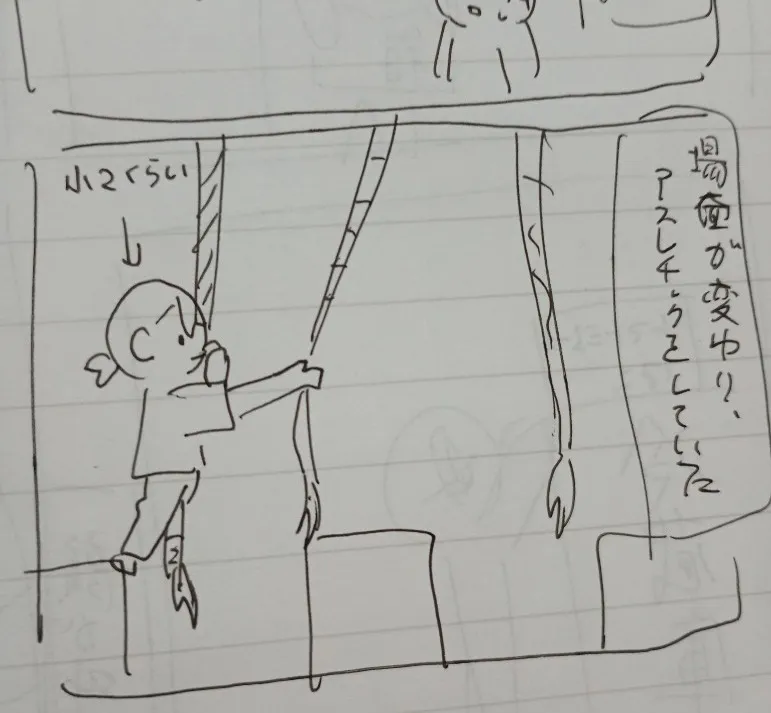 場面が変わり、
アスレチックをしていた
小2くらい